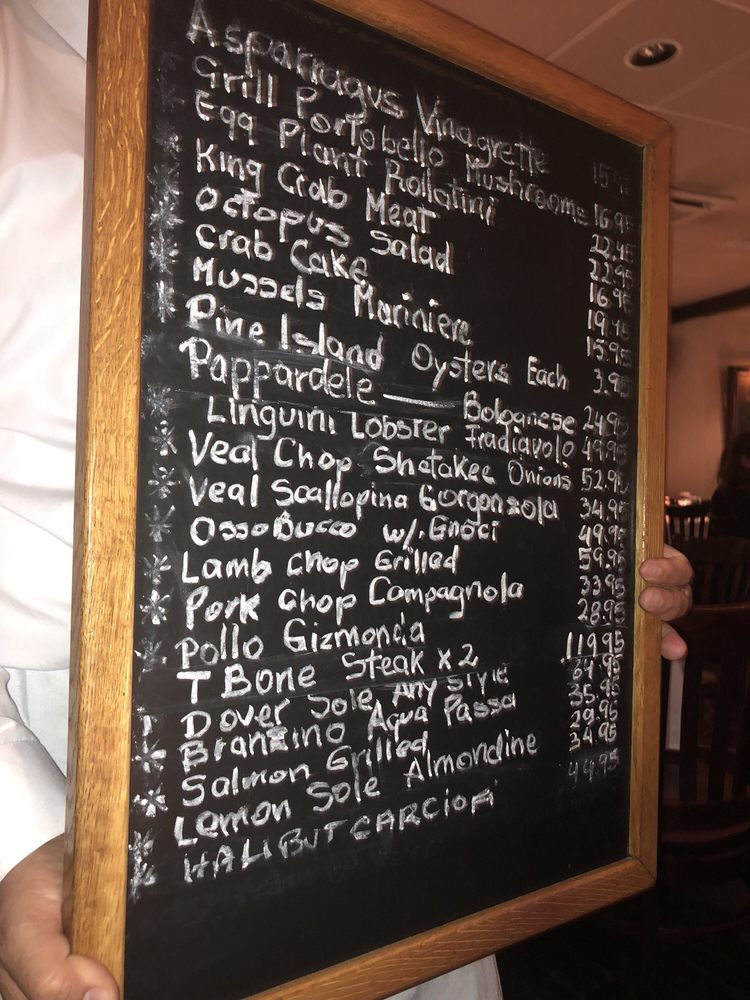 Asparragus Vinagrette 15.95
Grill Portobello Mushrooms 16.95
Egg Plant Rollatini 22.95
King Crab Meat 22.95
Octopus Salad 16.95
Crab Cake 19.95
Mussels Mariniere 15.95
Pine Island Oysters Each 3.95
Pappardele — Bologanese 24.95
Linguini Lobster Fradiavolo 49.95
Veal Chop Shetakee Onions 52.95
Veal Scallopina Gorgonzola 34.95
Osso Bucco w/. Gnoci 49.95
Lamb Chop Grilled 59.95
Pork Chop Campagnola 33.95
Pollo Gizmonda 28.95
T Bone Steak x 2 119.95
Dover Sole Any Style 64.95
Branzino Aqua Passa 35.95
Salmon Grilled 29.95
Lemon Sole Almondine 34.95
HALIBUT CARCIOFI 44.95